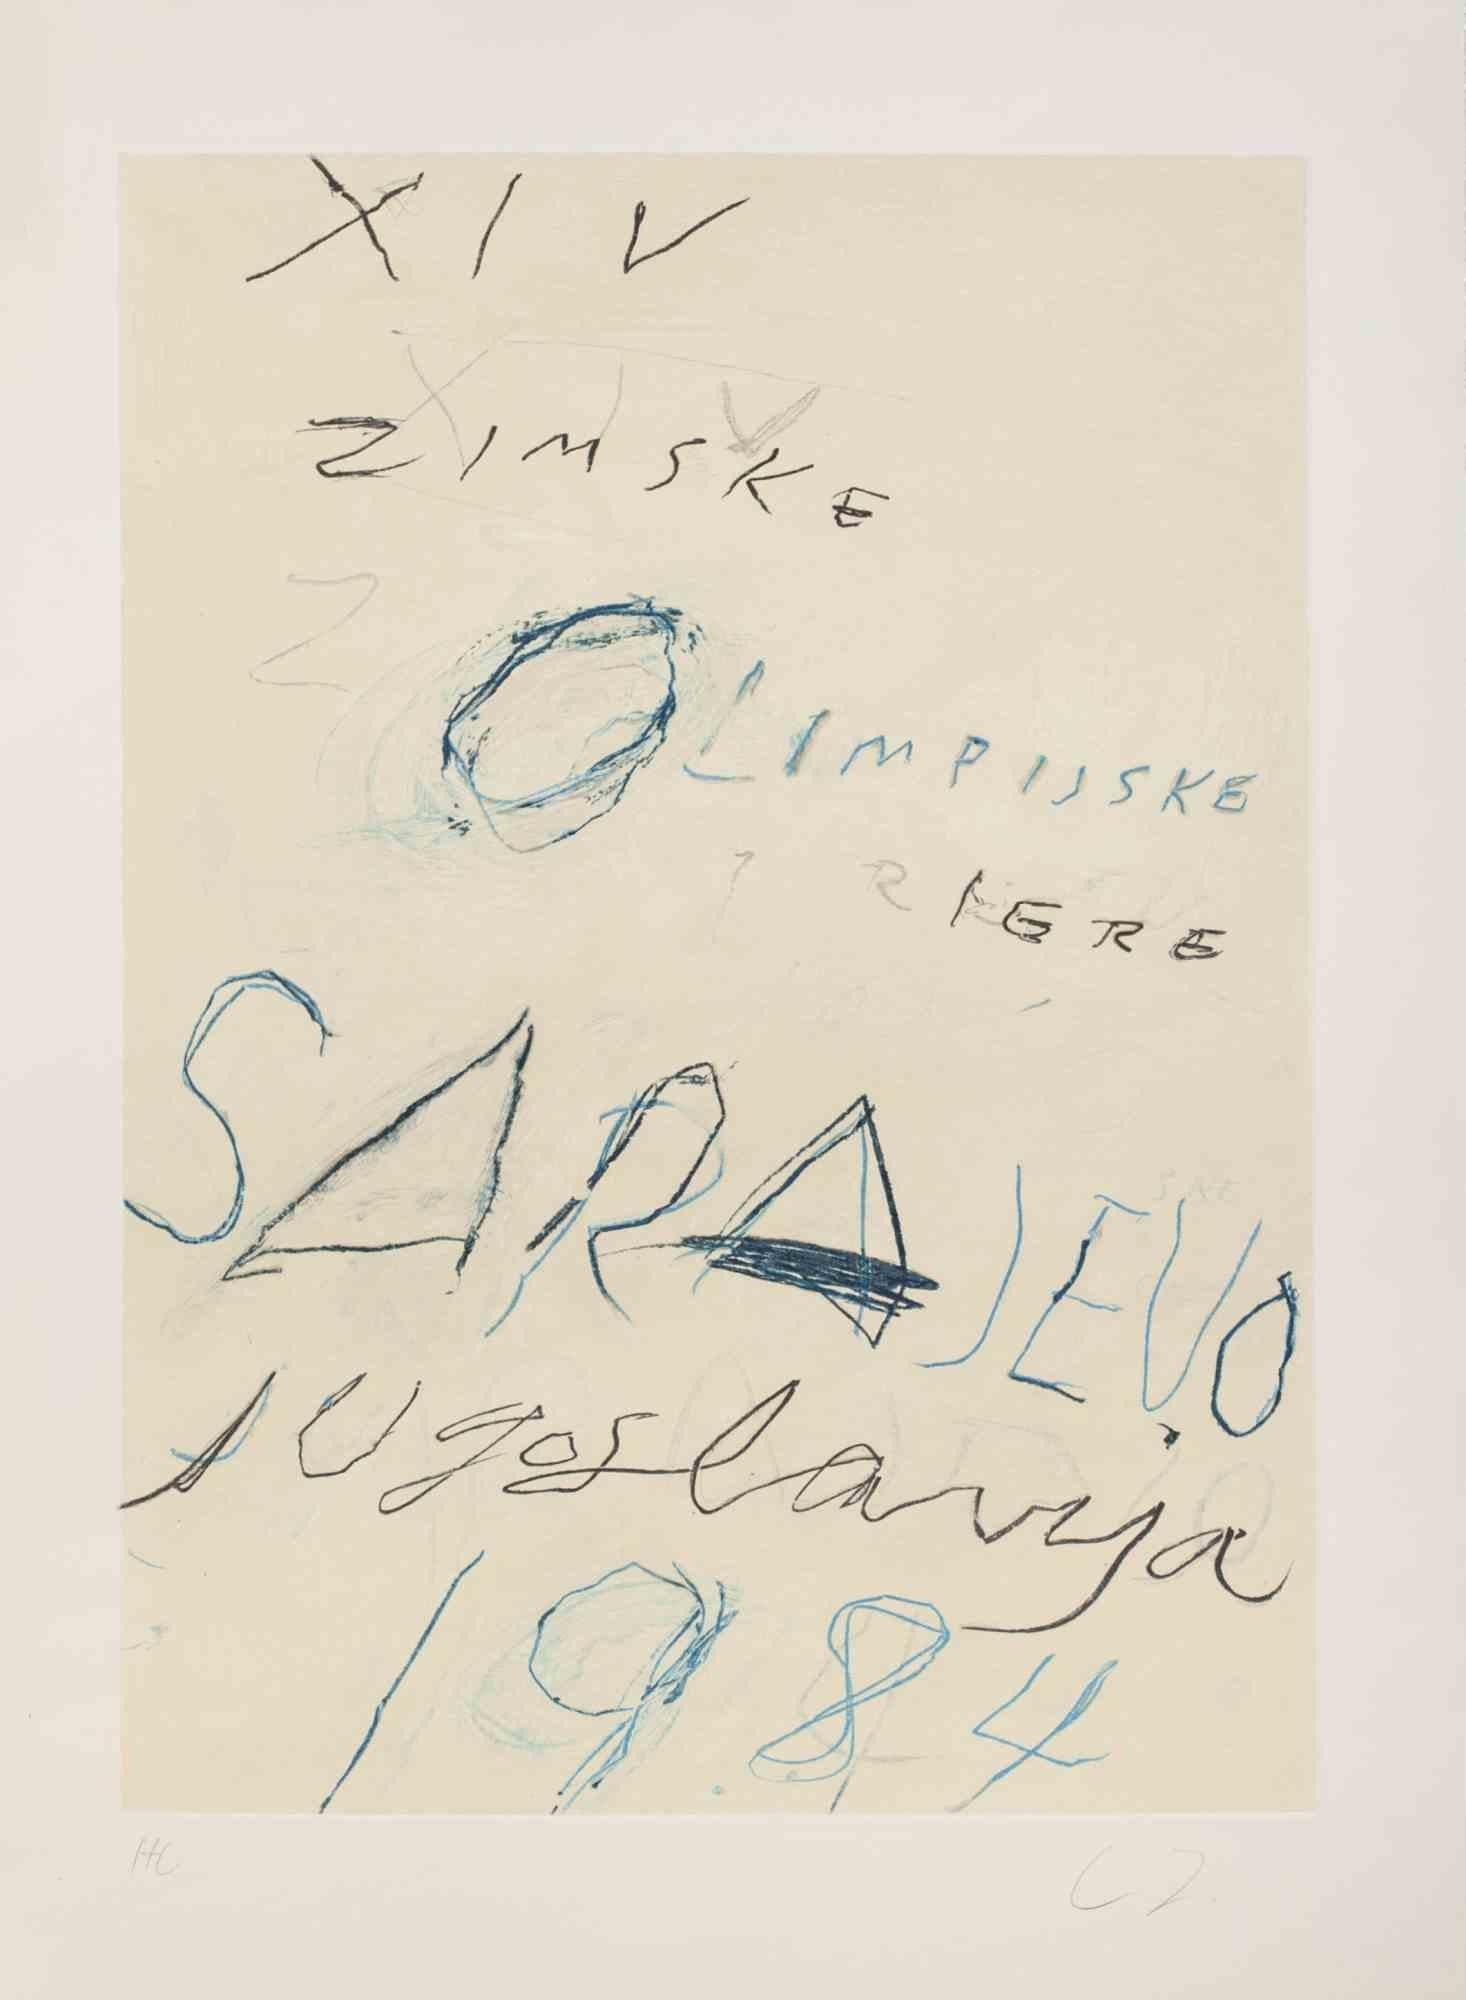 XIV
XIV
ZIMSKE
Z
OLIMPIJSKE
IGRE
SARAJEVO
Jugoslavija
1984
HC
CT.